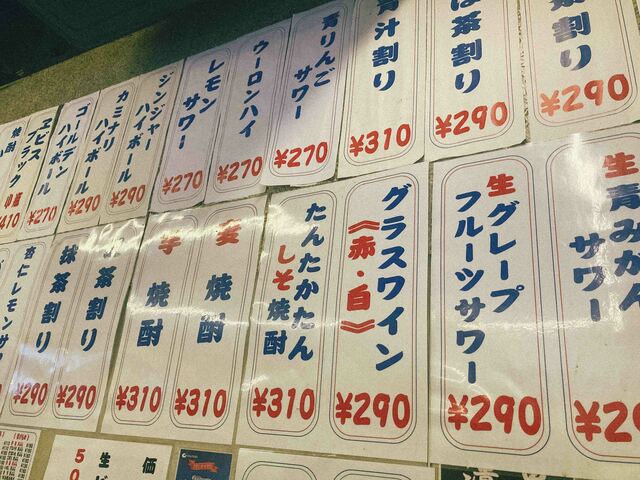 茶割り
¥290
ば茶割り
¥290
青汁割り
¥310
青りんご
サワー
¥270
ウーロンハイ
¥270
レモン
サワー
¥270
ジンジャー
ハイボール
¥290
カミナリ
ハイボール
¥290
ゴールデン
ハイボール
¥270
ヱビス
ブラック
小瓶
¥410
焼酎
生青みかん
サワー
¥29
生グレープ
フルーツサワー
¥290
グラスワイン
《赤・白》
¥290
たんたかたん
しそ焼酎
¥310
麦焼酎
¥310
芋焼酎
¥310
茶割り
¥290
抹茶割り
¥290
杏仁レモンサワー
生ビ
価
50